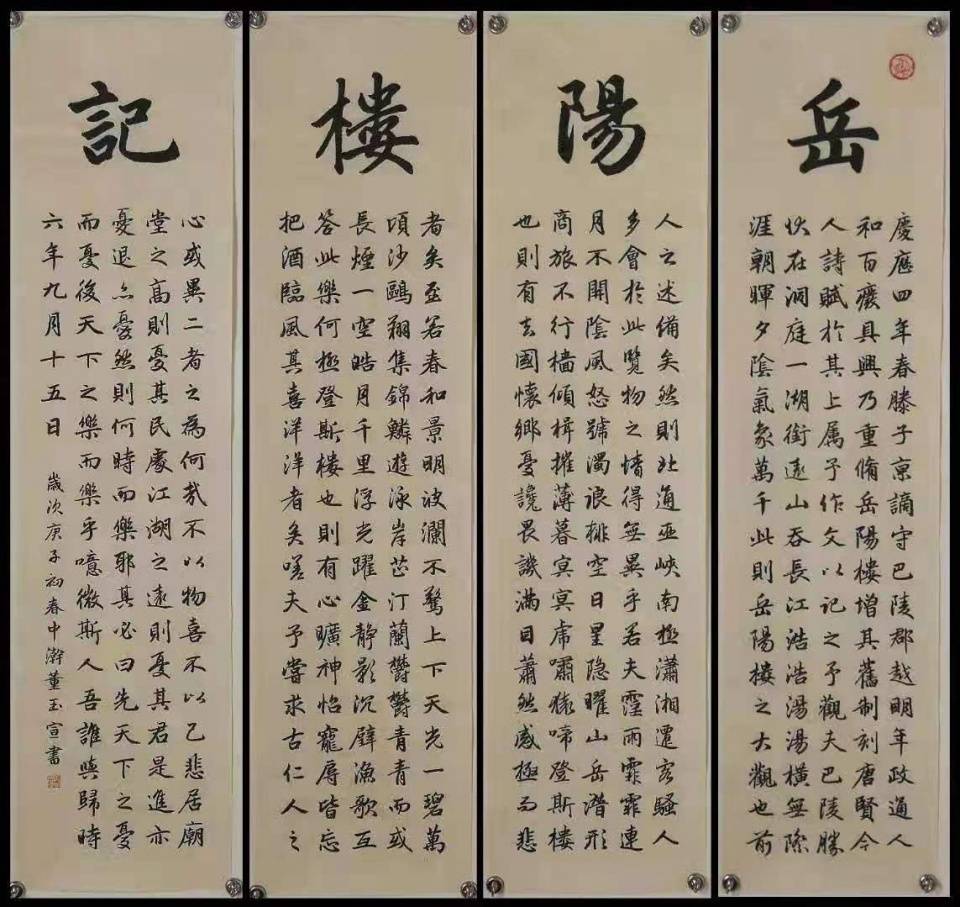 岳
慶應四年春滕子京謫守巴陵郡越明年政通人
和百癈具興乃重脩岳陽樓增其舊制刻唐賢今
人詩賦於其上属予作文以記之予觀夫巴陵勝
狀在洞庭一湖銜遠山吞長江浩浩湯湯橫無際
涯朝暉夕陰氣象萬千此則岳陽樓之大觀也前
陽
人之述備矣然則北通巫峽南極瀟湘遷客騷人
多會於此覽物之情得無異乎若夫霪雨霏霏連
月不開陰風怒號濁浪排空日星隐曜山岳潛形
商旅不行檣傾楫摧薄暮冥冥虎嘯猿啼登斯樓
也則有去國懷鄉憂讒畏譏滿目蕭然感極而悲
樓
者矣至若春和景明波瀾不驚上下天光一碧萬
頃沙鷗翔集錦鱗遊泳岸芷汀蘭鬱鬱青青而或
長煙一空皓月千里浮光躍金静影沉璧漁歌互
答此樂何極登斯樓也則有心曠神怡寵辱皆忘
把酒臨風其喜洋洋者矣嗟夫予嘗求古仁人之
記
心或異二者之為何哉不以物喜不以己悲居廟
堂之高則憂其民處江湖之遠則憂其君是進亦
憂退亦憂然則何時而樂耶其必曰先天下之憂
而憂後天下之樂而樂乎噫微斯人吾誰與歸時
六年九月十五日 歲次庚子初春中澣董玉宣書